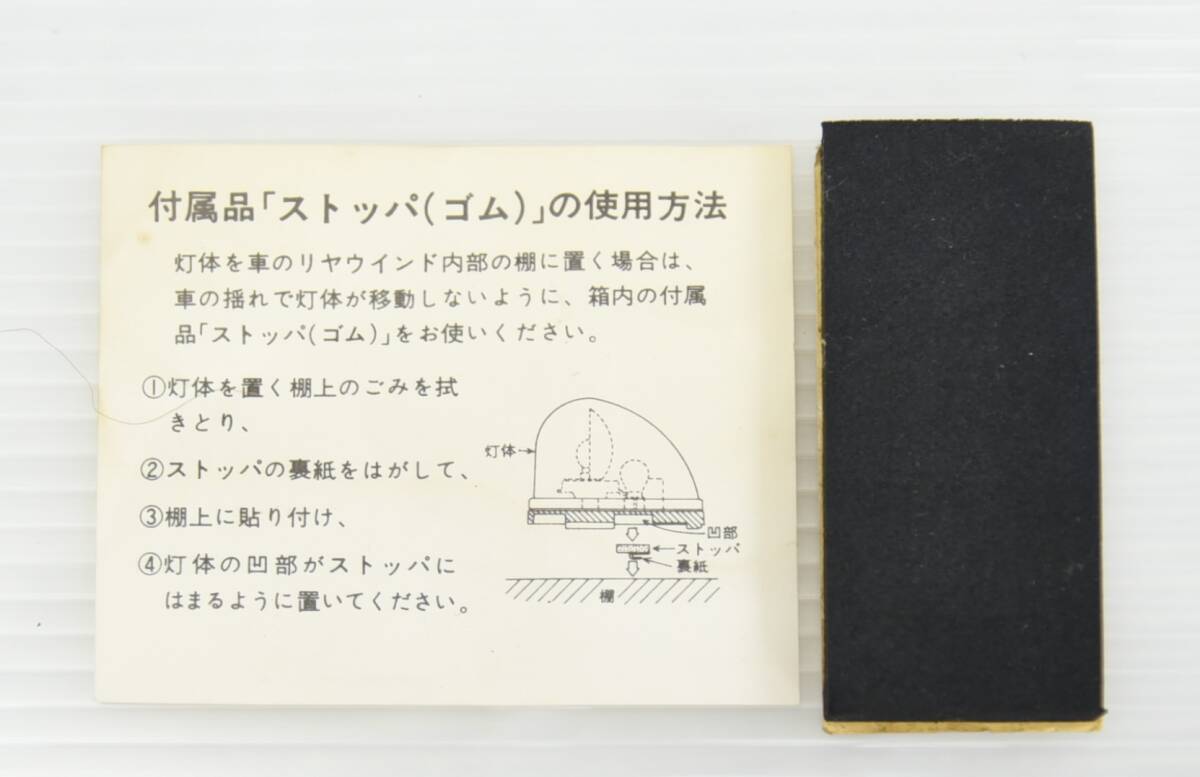 付属品「ストッパ(ゴム)」の使用方法
灯体を車のリヤウインド内部の棚に置く場合は、
車の揺れで灯体が移動しないように、箱内の付属
品「ストッパ(ゴム)」をお使いください。
①灯体を置く棚上のごみを拭
きとり、
②ストッパの裏紙をはがして、
③棚上に貼り付け、
④灯体の凹部がストッパに
はまるように置いてください。
灯体
凹部
ストッパ
裏紙
棚